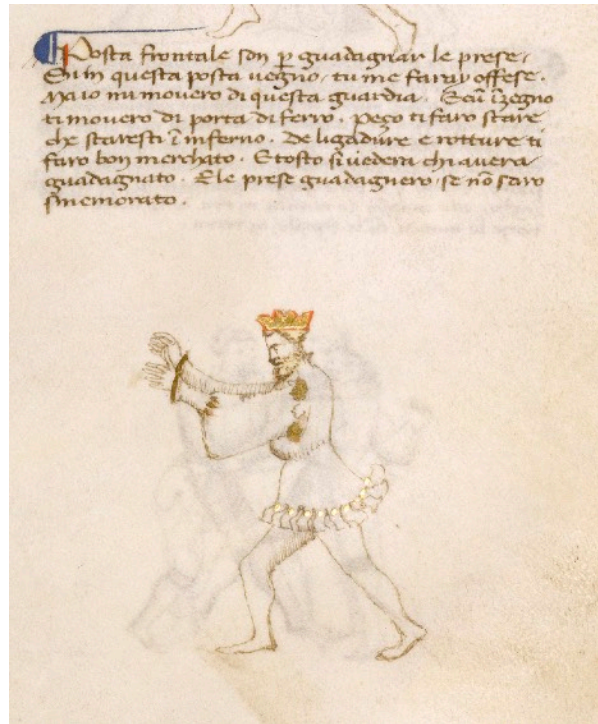 Posta frontale son p guadagnar le prese.
Si in questa posta uegno, tu me faray offese.
Ma io mi mouero di questa guardia. E cū īzegno
ti mouero di porta di ferro. Pezo ti faro stare
che staresti ī inferno. De ligadure e rotture ti
faro bon merchato. E tosto si uedera chi auera
guadagnato. E le prese guadagnero se nō saro
smemorato.